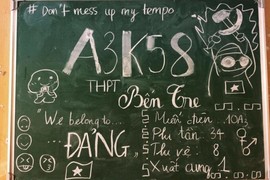 # Don't mess up my tempo
A3K58
THPT
Bến Tre
"We belong to...
ĐẢNG"
Miễn điên 10A3
Phi tần 34
Thị vệ 8
Xuất cung 1